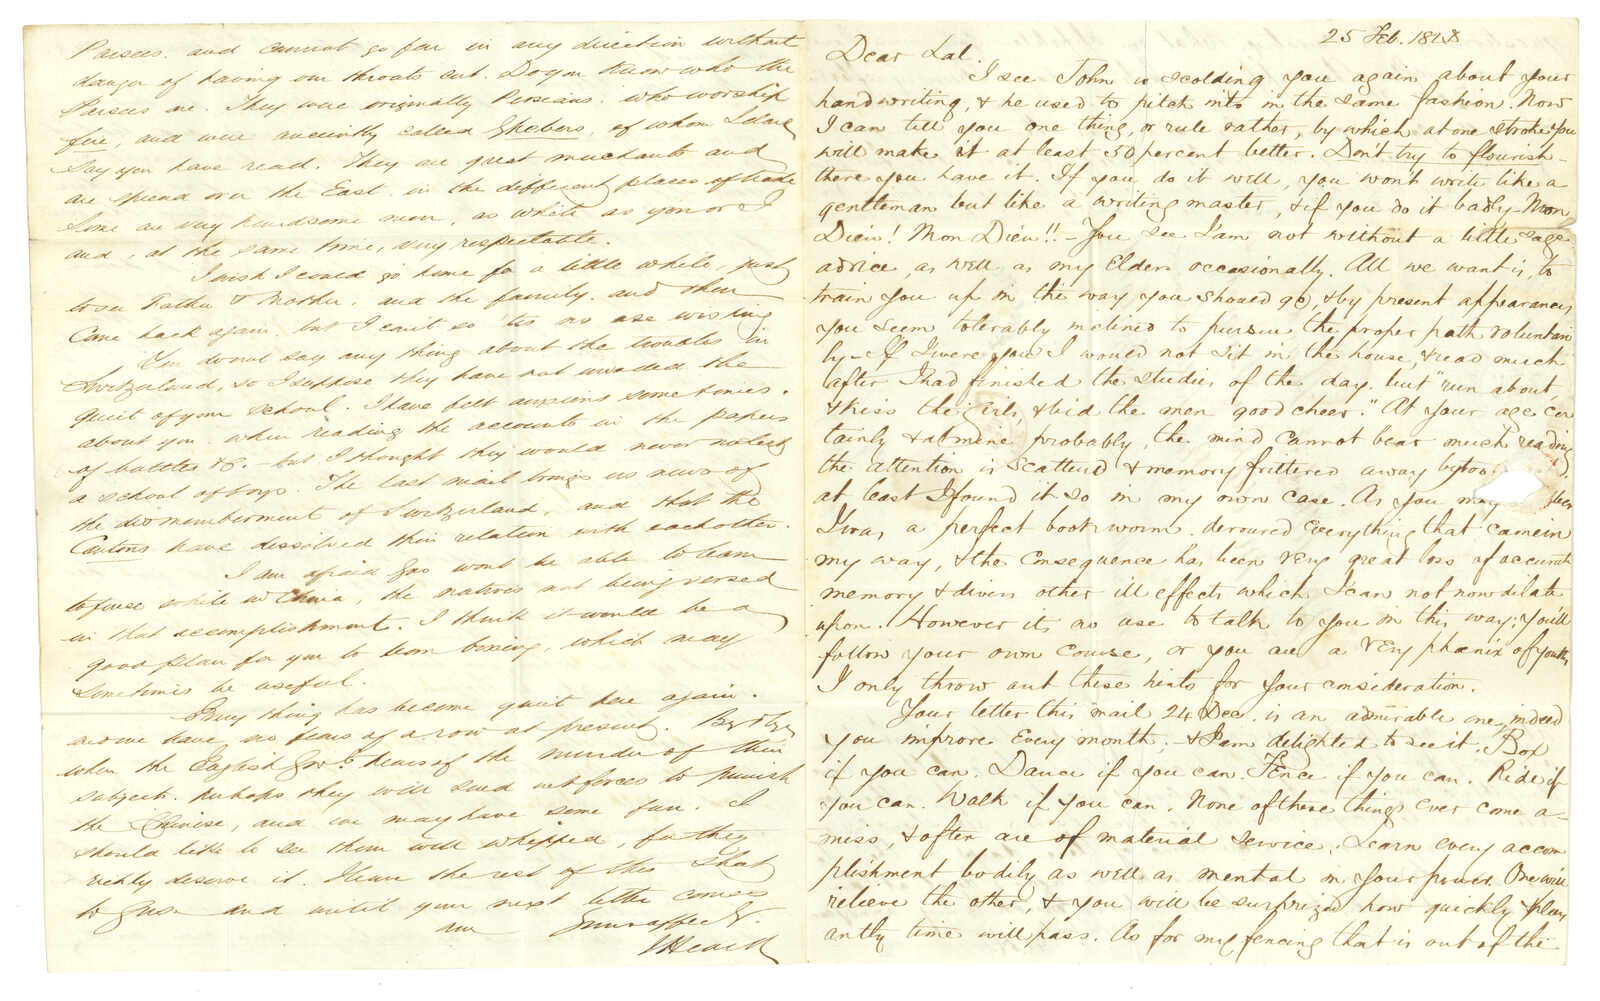 Parsees. and cannot go far in any direction without
danger of having our throats cut. Do you know who the
Parsees are. They were originally Persians. who worship
fire, and were anciently called Ghebers, of whom I dare
say you have read. They are great merchants and
are spread over the East. in the different places of trade
Some are very handsome men, as white as you or I
and, at the same time, very respectable.
I wish I could go home for a little while, just
to see Father & Mother, and the family. and then
come back again. but I can't so 'tis no use wishing
You do not say any thing about the troubles in
Switzerland, so I suppose they have not invaded the
quiet of your school. I have felt anxious sometimes.
about you when reading the accounts in the papers
of battles &c. - but I thought they would never molest
a school of boys. The last mail brings us news of
the dismemberment of Switzerland, and that the
Cantons have dissolved their relation with each other.
I am afraid Gus wont be able to learn
to fence while in China, the natives not being versed
in that accomplishment. I think it would be a
good plan for you to learn boxing, which may
sometimes be useful.
Every thing has become quiet here again.
and we have no fears of a row at present. By & bye
when the English Govt. hears of the murder of their
subjects. perhaps they will send out forces to punish
the Chinese, and we may have some fun. I
should like to see them well whipped, for they
richly deserve it. I leave the rest of this sheet
to Gus. and until your next letter comes
am Your affect.
J Heard
25 Feb. 1848
Dear Lal.
I see John is scolding you again about your
handwriting, & he used to pitch into in the same fashion. Now
I can tell you one thing, or rule rather, by which at one stroke you
will make it at least 50 percent better. Don't try to flourish -
there you have it. If you do it well, you won't write like a
gentleman but like a writing master, & if you do it badly - Mon
Dieu! Mon Dieu!! - You see I am not without a little sage
advice, as well as my Elders occasionally. All we want is, to
train you up in the way you should go, & by present appearances
you seem tolerably inclined to pursue the proper path voluntari
ly - If I were you I would not sit in the house, & read much
after I had finished the studies of the day. but "run about,
& kiss the girls, & bid the men good cheer." At your age cer
tainly & at mine probably, the mind cannot bear much reading
the attention is scattered & memory frittered away by too
at least I found it so in my own case. As you may
I was a perfect book worm. devoured Everything that came in
my way, & the consequence has been very great loss of accurate
memory & divers other ill effects which I can not now dilate
upon. However it's no use to talk to you in this way; you'll
follow your own course, or you are a very phœnix of youths
I only throw out these hints for your consideration.
Your letter this mail 24 Dec. is an admirable one, indeed
you improve every month. & I am delighted to see it. Box
if you can. Dance if you can. Fence if you can. Ride if
you can. Walk if you can. None of these things ever come a-
miss, & often are of material service. Learn every accom
plishment bodily as well as mental in your power. One will
relieve the other, & you will be surprized how quickly & pleas
antly time will pass. As for my fencing that is out of the